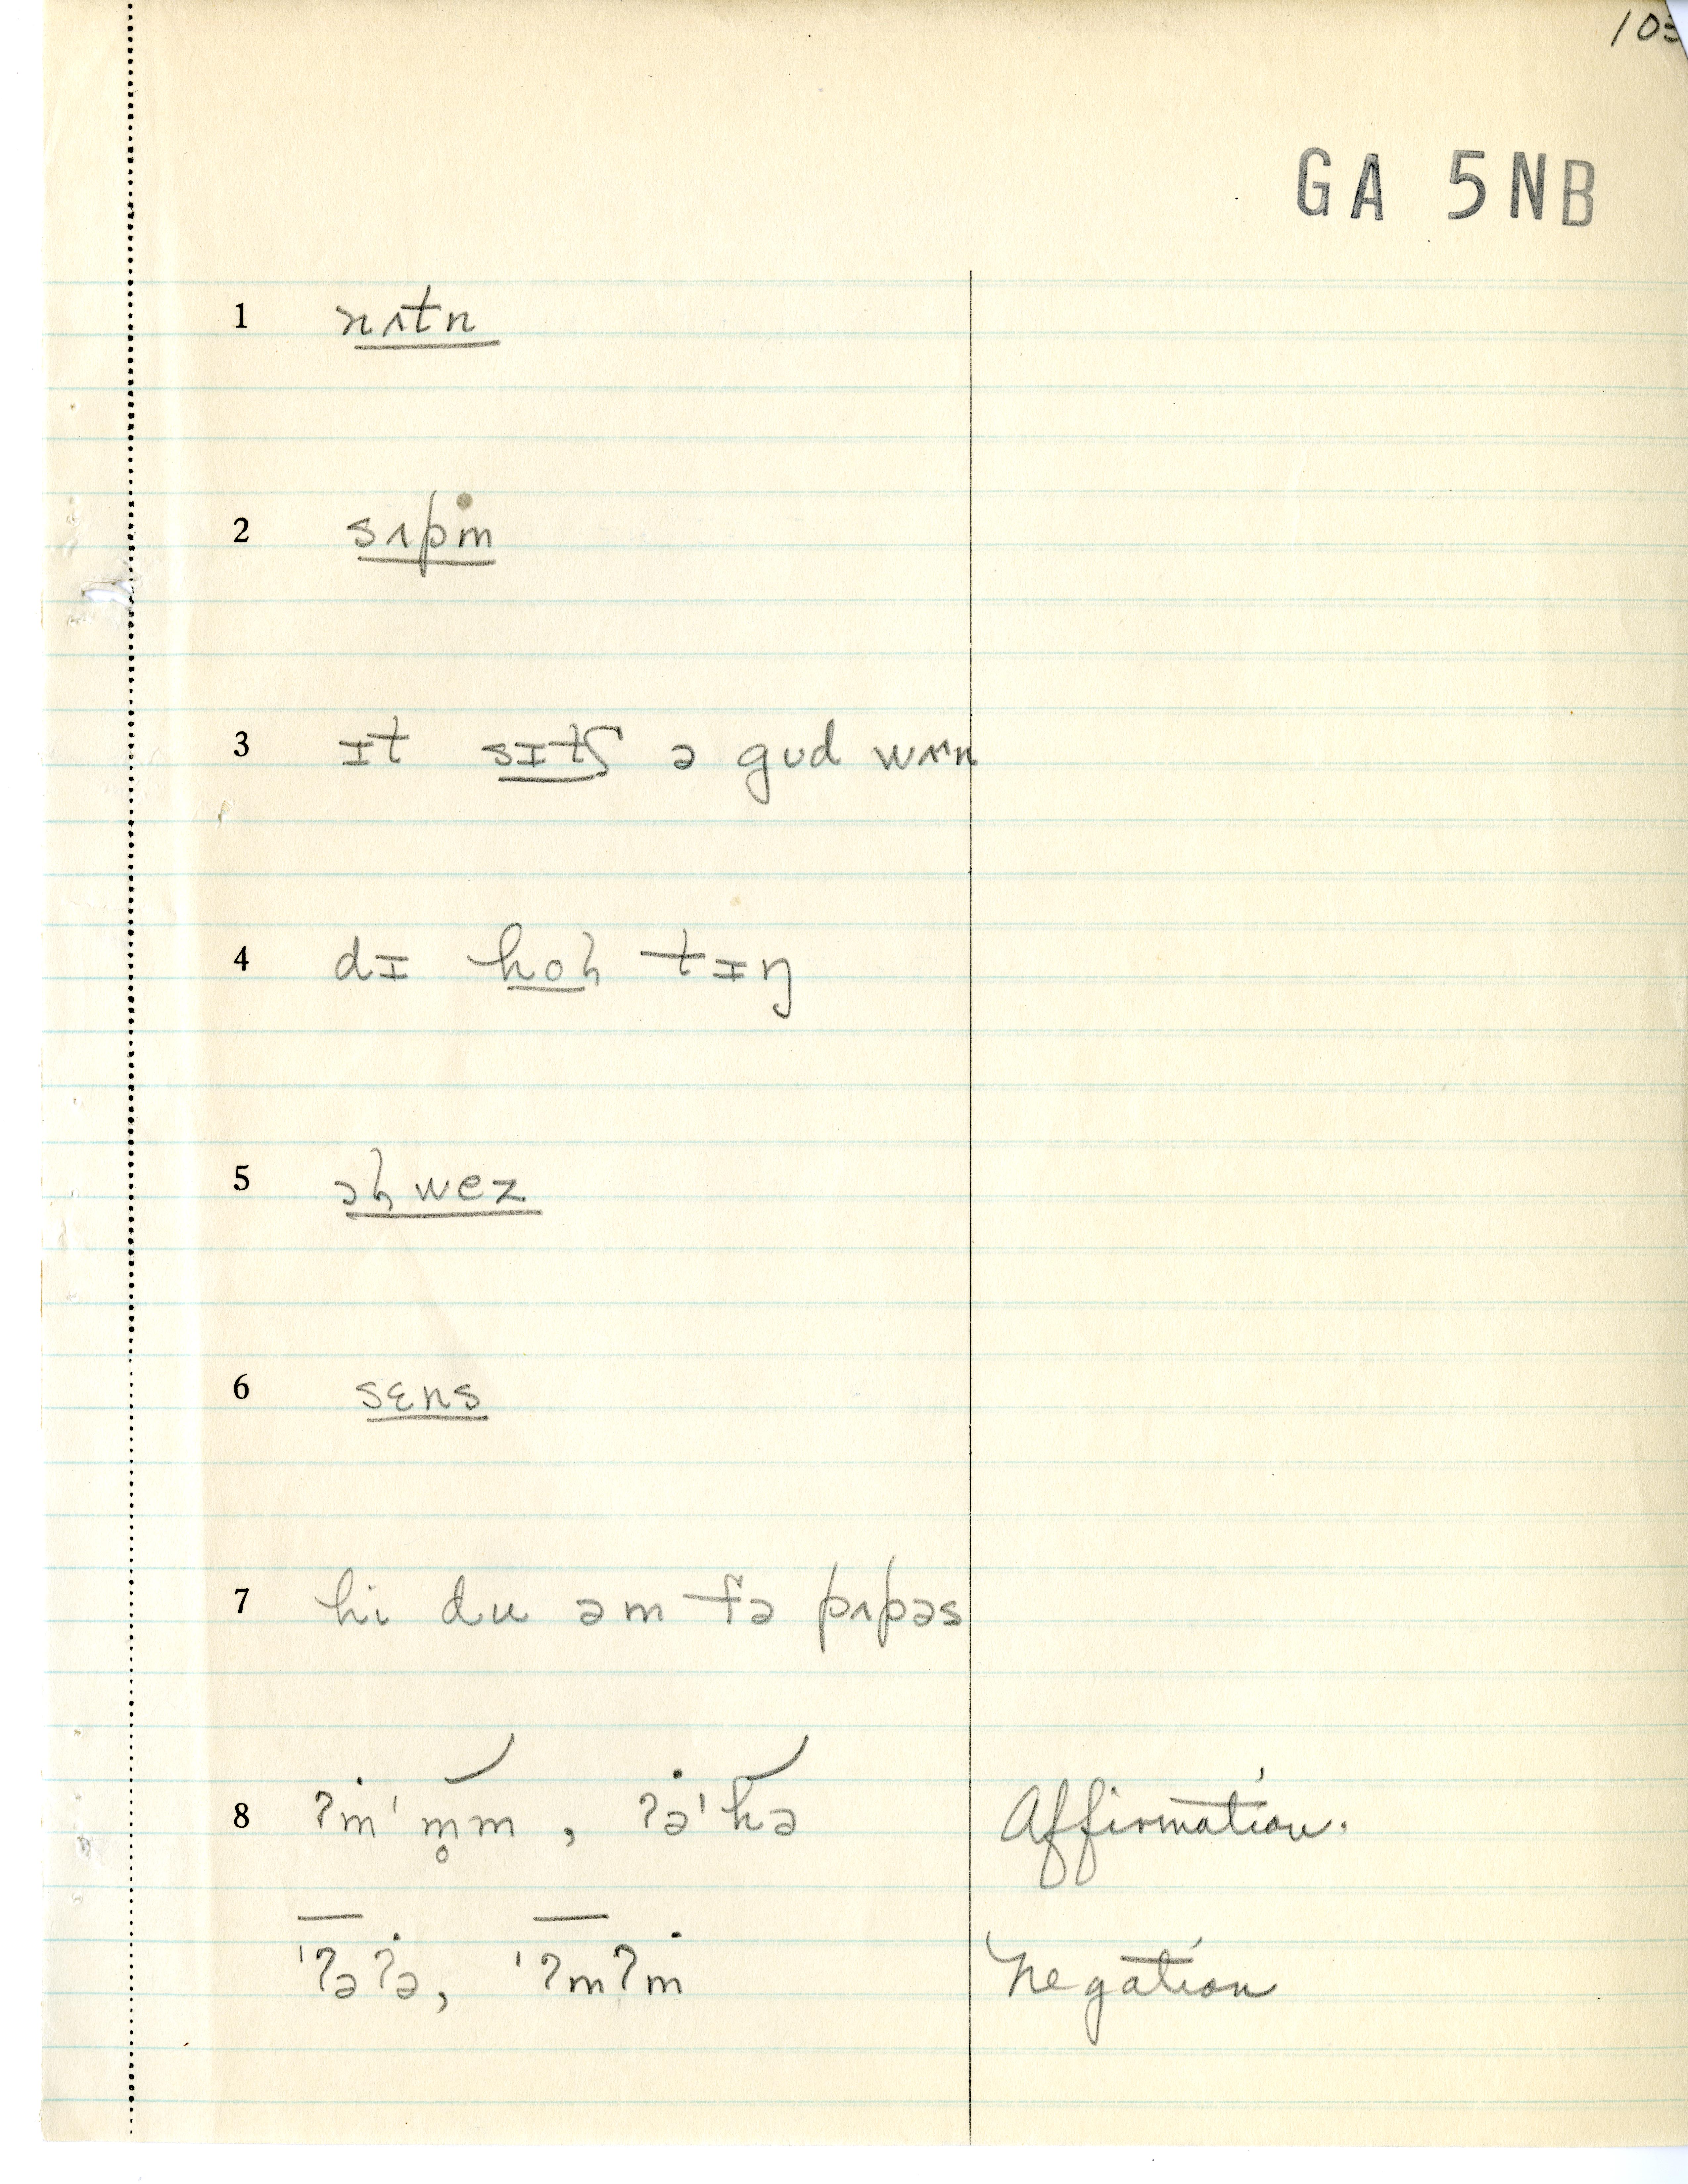 103
GA 5NB
1 nʌtn
2 sʌpm
3 ɪt sɪtʃ ə gʊd wʌn
4 dɪ hoɦ tɪŋ
5 ɔɦwez
6 sɛns
7 hi du əm fə pʌpəs
8 ʔm̩ˈm̥m, ʔəˈhə Affirmation.
ˈʔəʔə, ˈʔmʔm Negation